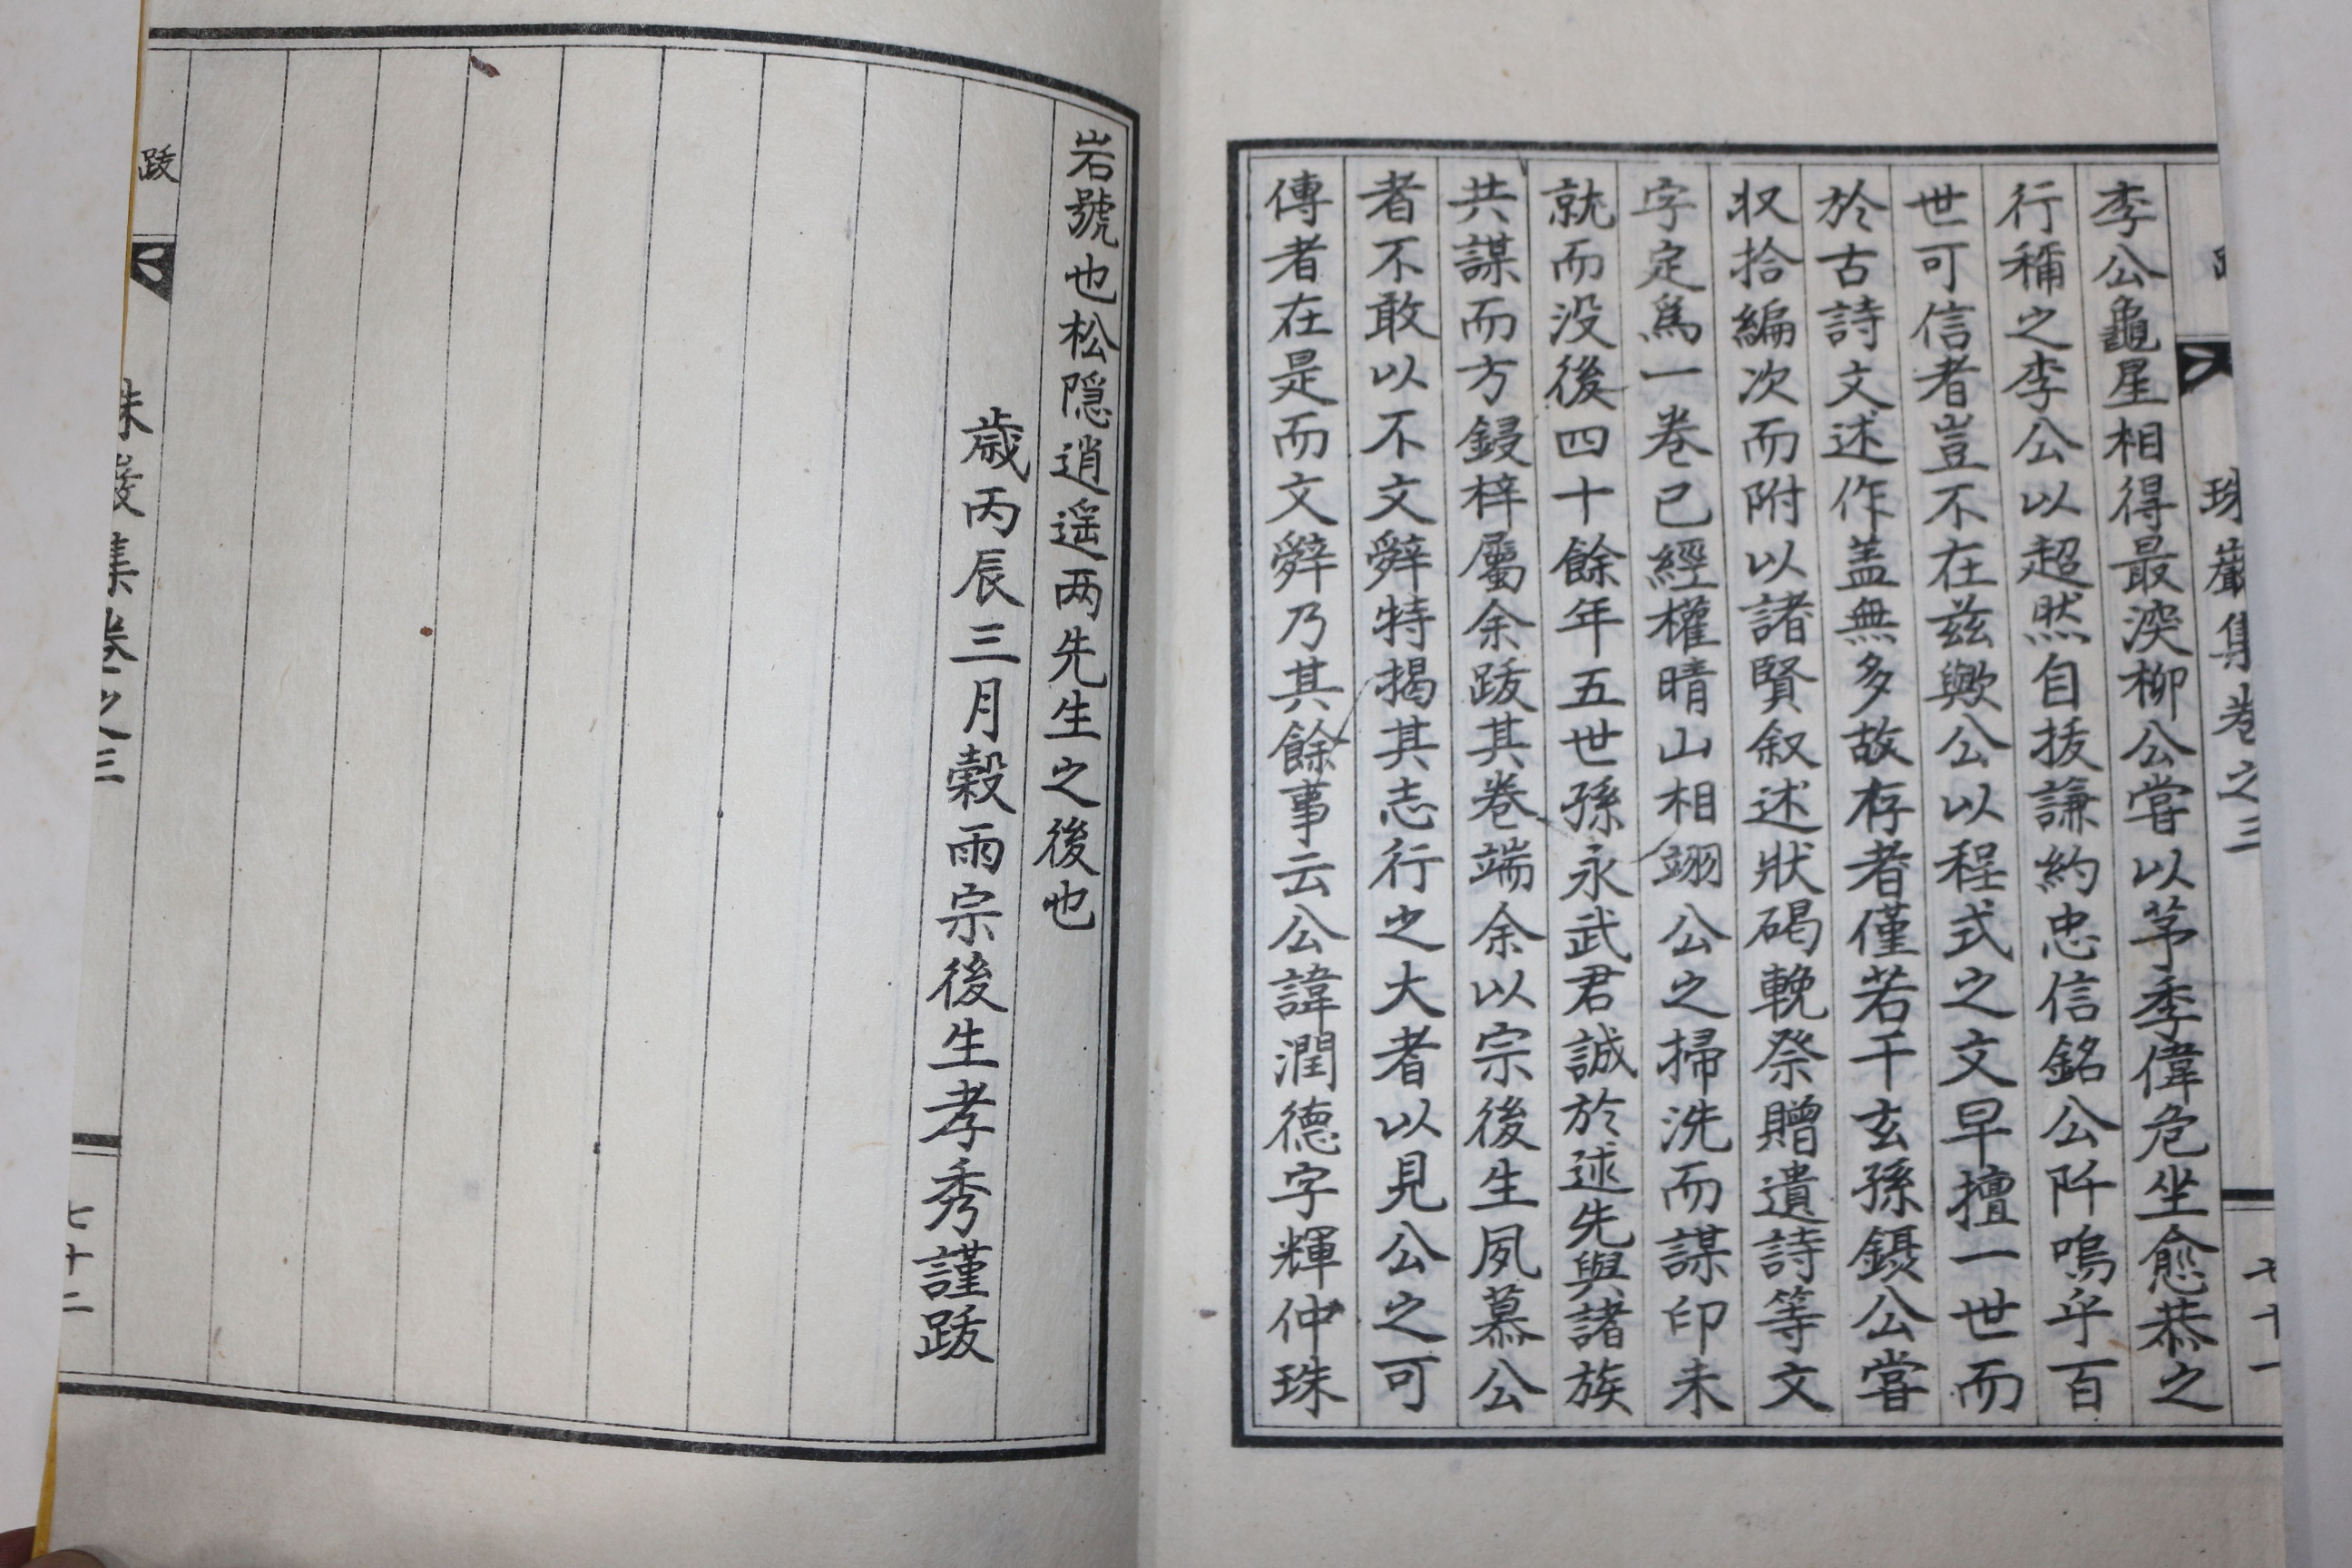 珠巖集卷之三
七十一
李公龜星相得最深柳公嘗以茅季偉危坐愈恭之
行稱之李公以超然自拔謙約忠信銘公阡嗚乎百
世可信者豈不在兹歟公以程式之文早擅一世而
於古詩文述作盖無多故存者僅若干玄孫鑷公嘗
収拾編次而附以諸賢叙述狀碣輓祭贈遺詩等文
字定爲一卷已經權晴山相翊公之掃洗而謀印未
就而没後四十餘年五世孫永武君誠於述先與諸族
共謀而方鋟梓屬余跋其卷端余以宗後生夙慕公
者不敢以不文辭特揭其志行之大者以見公之可
傳者在是而文辭乃其餘事云公諱潤德字輝仲珠
岩號也松隱逍遥两先生之後也
歳丙辰三月穀雨宗後生孝秀謹跋
跋
集卷之三
七十二